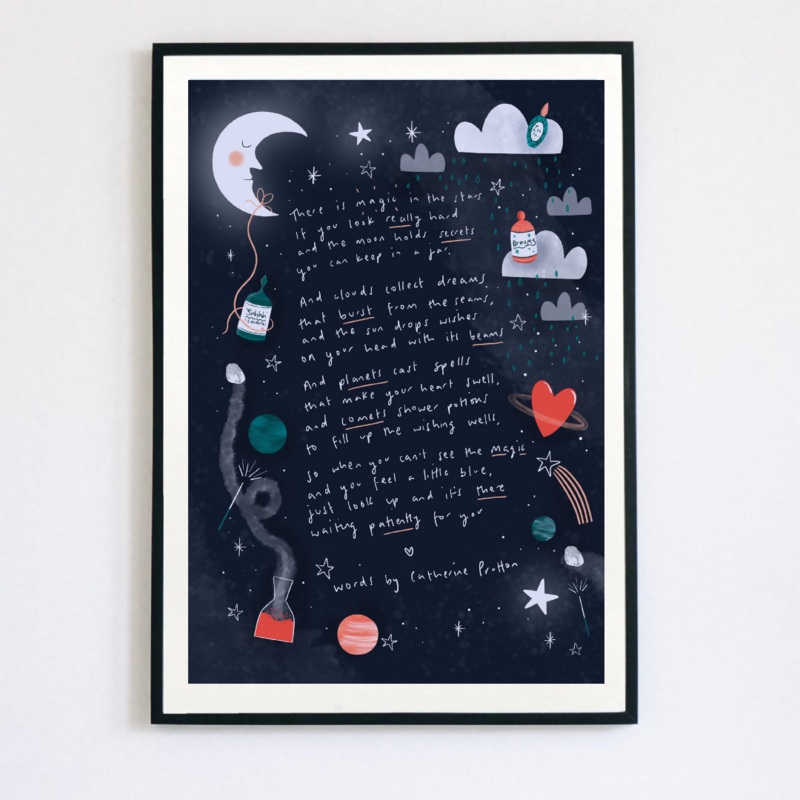 There is magic in the stars
if you look really hard
and the moon holds secrets
you can keep in a jar.
And clouds collect dreams
that burst from the seams,
and the sun drops wishes
on your head with its beams
And planets cast spells
that make your heart swell,
and comets shower potions
to fill up the wishing wells,
So when you can't see the magic
and you feel a little blue,
just look up and it's there
waiting patiently for you
words by Catherine Prutton
Dreams